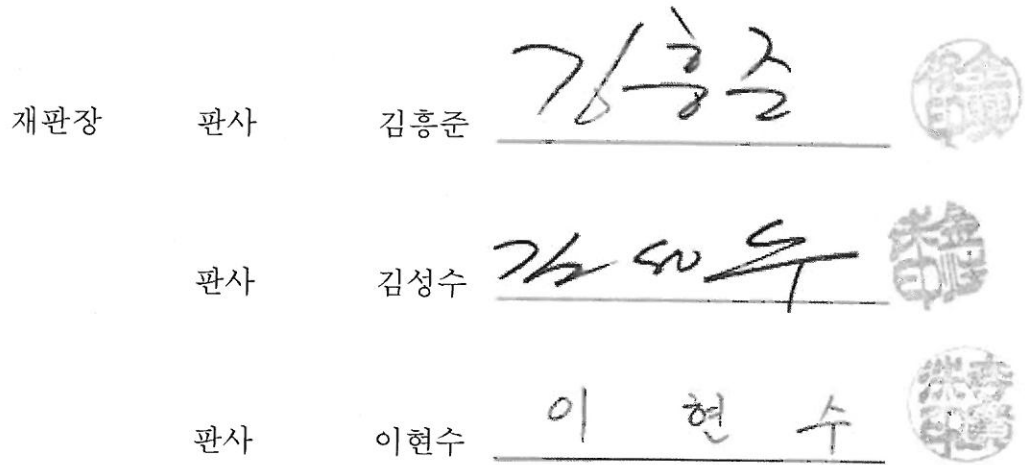 재판장 판사 김흥준 김흥준
판사 김성수 김성수
판사 이현수 이 현 수